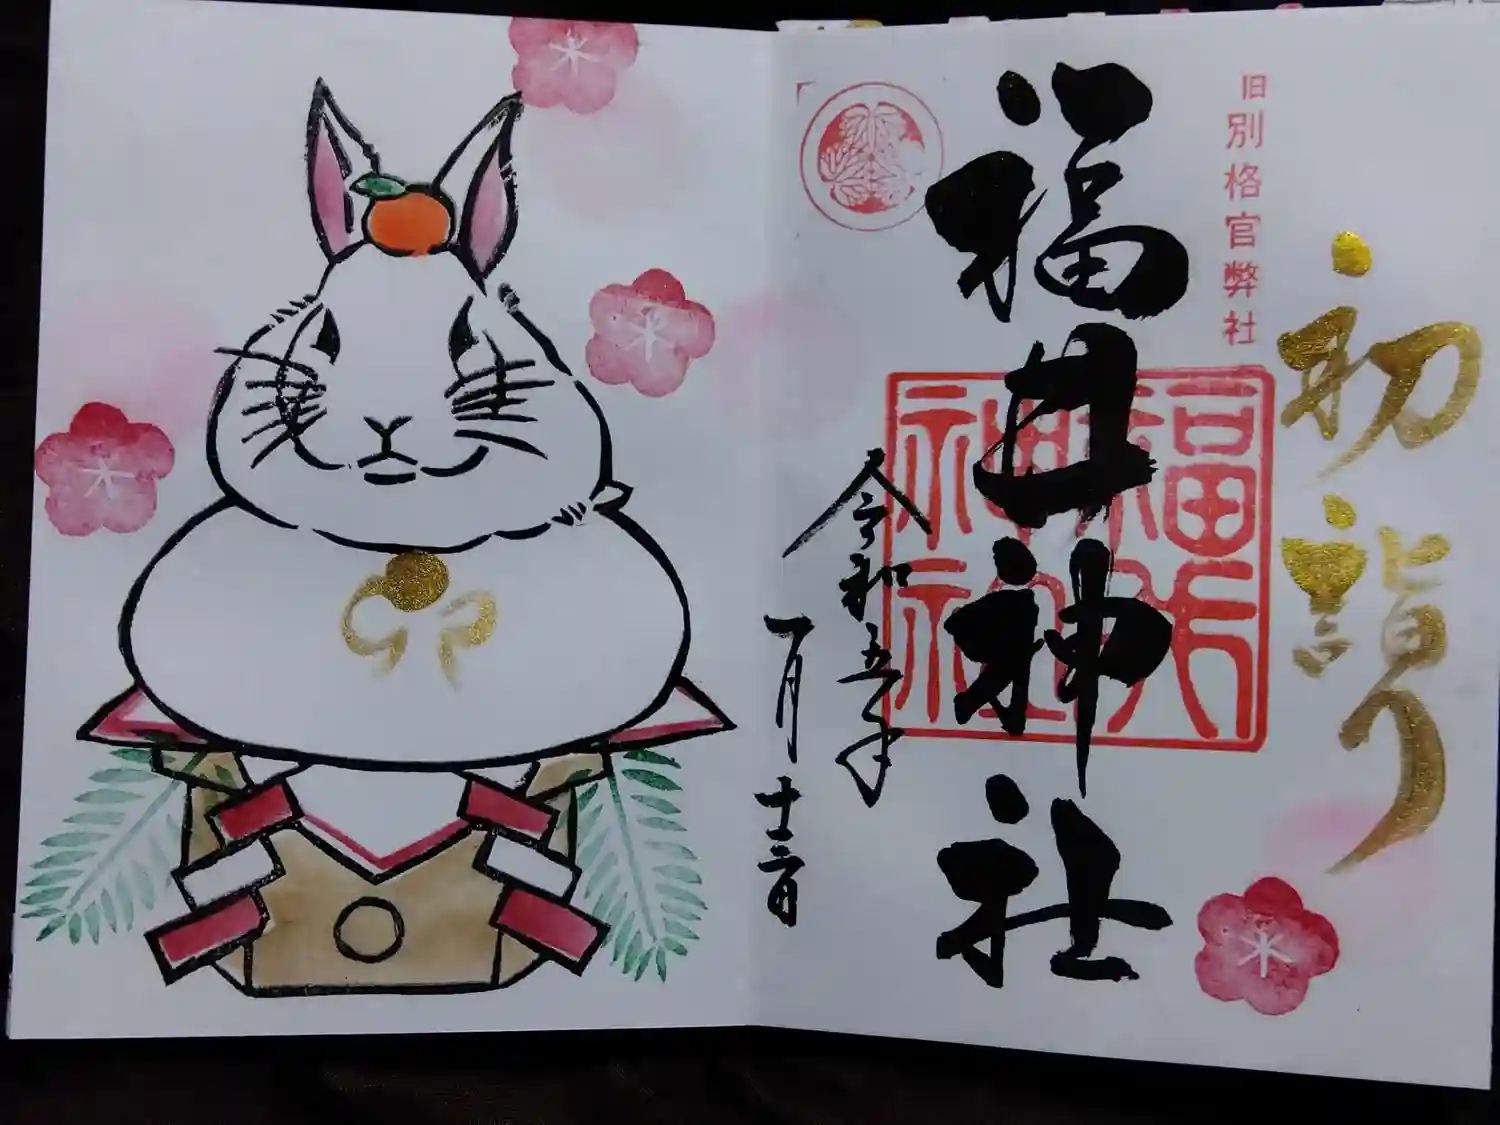 初詣り
旧別格官弊社
福井神社
福井
神社
令和五年
一月十二日